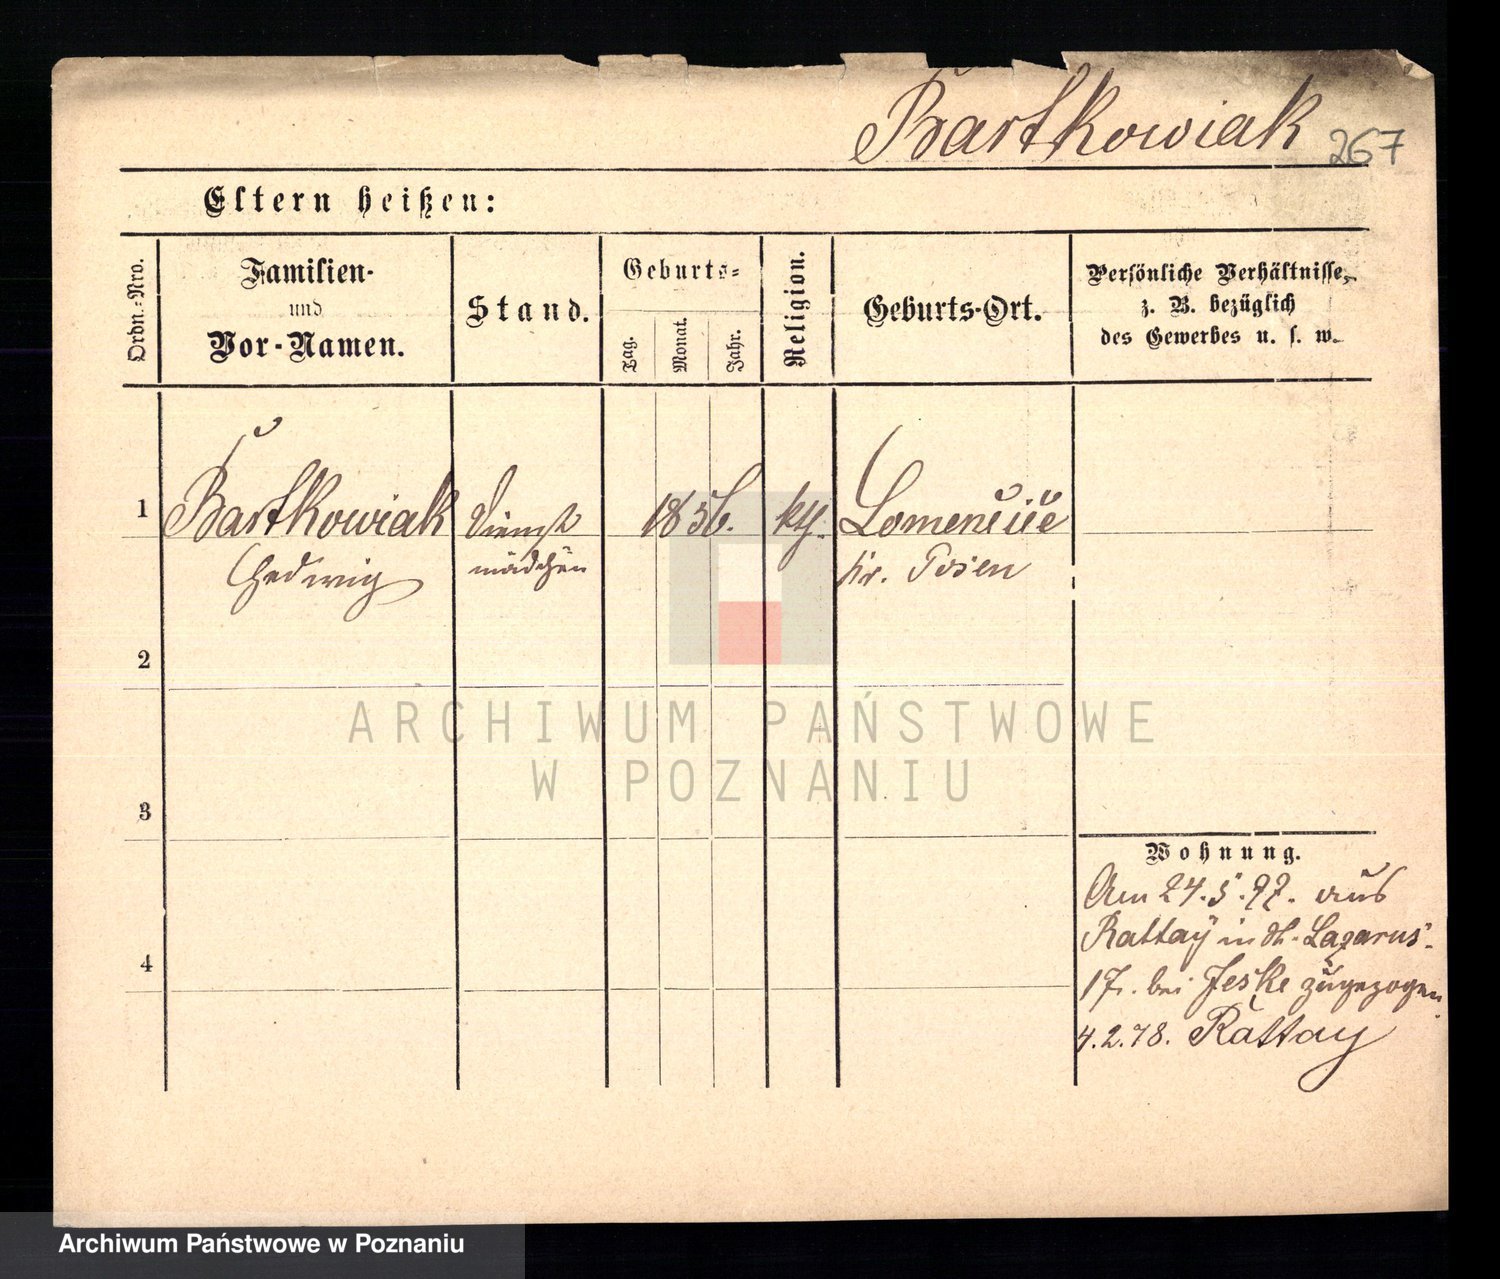 Bartkowiak 267
Eltern heißen:
Ordn.-Nro.
Familien-
und
Vor-Namen.
Stand.
Geburts-
Tag.
Monat.
Jahr.
Religion.
Geburts-Ort.
Persönliche Verhältnisse,
z. B. bezüglich
des Gewerbes u. s. w.
1 Bartkowiak Dienst 1856. kth.
Hedwig mädchen Kr. Posen
2
3
4
Wohnung.
Am 24.5.77. aus
Rattay in St. Lazarus
17. bei Jeske zugezogen
4.2.78. Rattay
ARCHIWUM PAŃSTWOWE
W POZNANIU
Archiwum Państwowe w Poznaniu